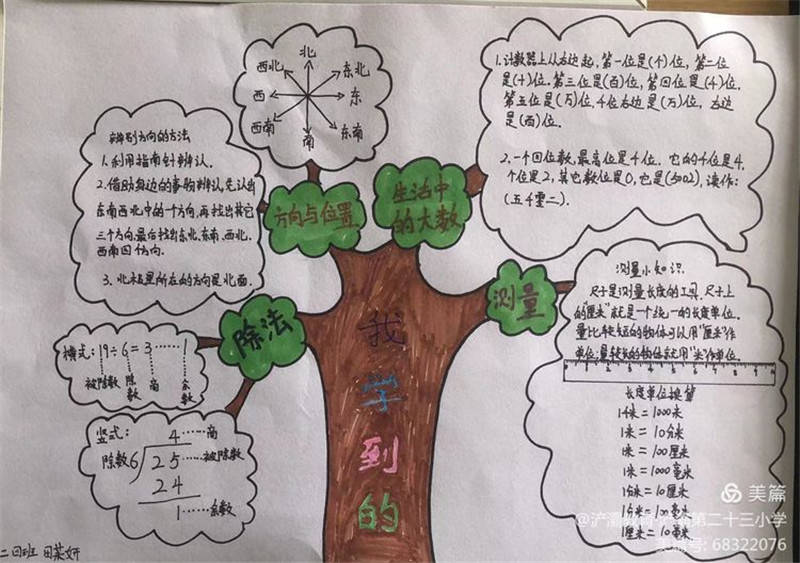 北
西北
东北
西
东
西南
南
东南
辨别方向的方法
1.利用指南针辨认。
2.借助身边的事物辨认,先认出
东南西北中的一个方向,再找出其它
三个方向,最后找出东北、东南、西北、
西南四个方向。
3、北极星所在的方向是北面。
方向与位置
生活中
的大数
1.计数器上从右边起,第一位是(个)位,第二位
是(十)位.第三位是(百)位,第四位是(千)位.
第五位是(万)位.千位左边是(万)位,右边
是(百)位.
2.一个四位数,最高位是千位,它的千位是4,
个位是2,其它数位是0,它是(5002),读作:
(五千零二).
测量
测量小知识
尺子是测量长度的工具,尺子上
的"厘米"就是一个统一的长度单位.
量比较短的物体可以用"厘米"作
单位.量较长的物体就用"米"作单位.
长度单位换算
1千米=1000米
1米=10分米
1米=100厘米
1米=1000毫米
1分米=10厘米
1分米=100毫米
1厘米=10毫米
除法
横式:19÷6=3……1
被除数
除数
商
余数
竖式:
4……商
除数6 25……被除数
24
1……余数
我
学
到
的
美篇
第二十三小学
美篇号: 68322076